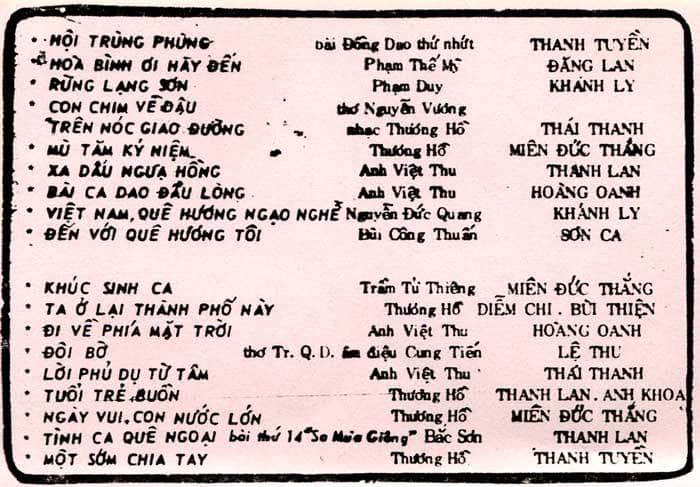 * HỘI TRÙNG PHÙNG bài Đồng Dao thứ nhứt THANH TUYỀN
* HOÀ BÌNH ƠI HÃY ĐẾN Phạm Thế Mỹ ĐĂNG LAN
* RỪNG LẠNG SƠN Phạm Duy KHÁNH LY
* CON CHIM VỀ ĐẬU thơ Nguyễn Vương
TRÊN NÓC GIAO ĐƯỜNG nhạc Thương Hồ THÁI THANH
* MÙ TĂM KỶ NIỆM Thương Hồ MIÊN ĐỨC THẮNG
* XA DẤU NGỰA HỒNG Anh Việt Thu THANH LAN
* BÀI CA DAO ĐẦU LÒNG Anh Việt Thu HOÀNG OANH
* VIỆT NAM, QUÊ HƯƠNG NGẠO NGHỄ Nguyễn Đức Quang KHÁNH LY
* ĐẾN VỚI QUÊ HƯƠNG TÔI Bùi Công Thuấn SƠN CA
* KHÚC SINH CA Trầm Tử Thiêng MIÊN ĐỨC THẮNG
* TA Ở LẠI THÀNH PHỐ NÀY Thương Hồ DIỄM CHI . BÙI THIỆN
* ĐI VỀ PHÍA MẶT TRỜI Anh Việt Thu HOÀNG OANH
* ĐÔI BỜ thơ Tr. Q. D. âm điệu Cung Tiến LỆ THU
* LỜI PHÙ DU TỪ TÂM Anh Việt Thu THÁI THANH
* TUỔI TRẺ BUỒN Thương Hồ THANH LAN . ANH KHOA
* NGÀY VUI, CON NƯỚC LỚN Thương Hồ MIÊN ĐỨC THẮNG
* TÌNH CA QUÊ NGOẠI bài thứ 14 "Sa Mưa Giông" Bắc Sơn THANH LAN
* MỘT SỚM CHIA TAY Thương Hồ THANH TUYỀN